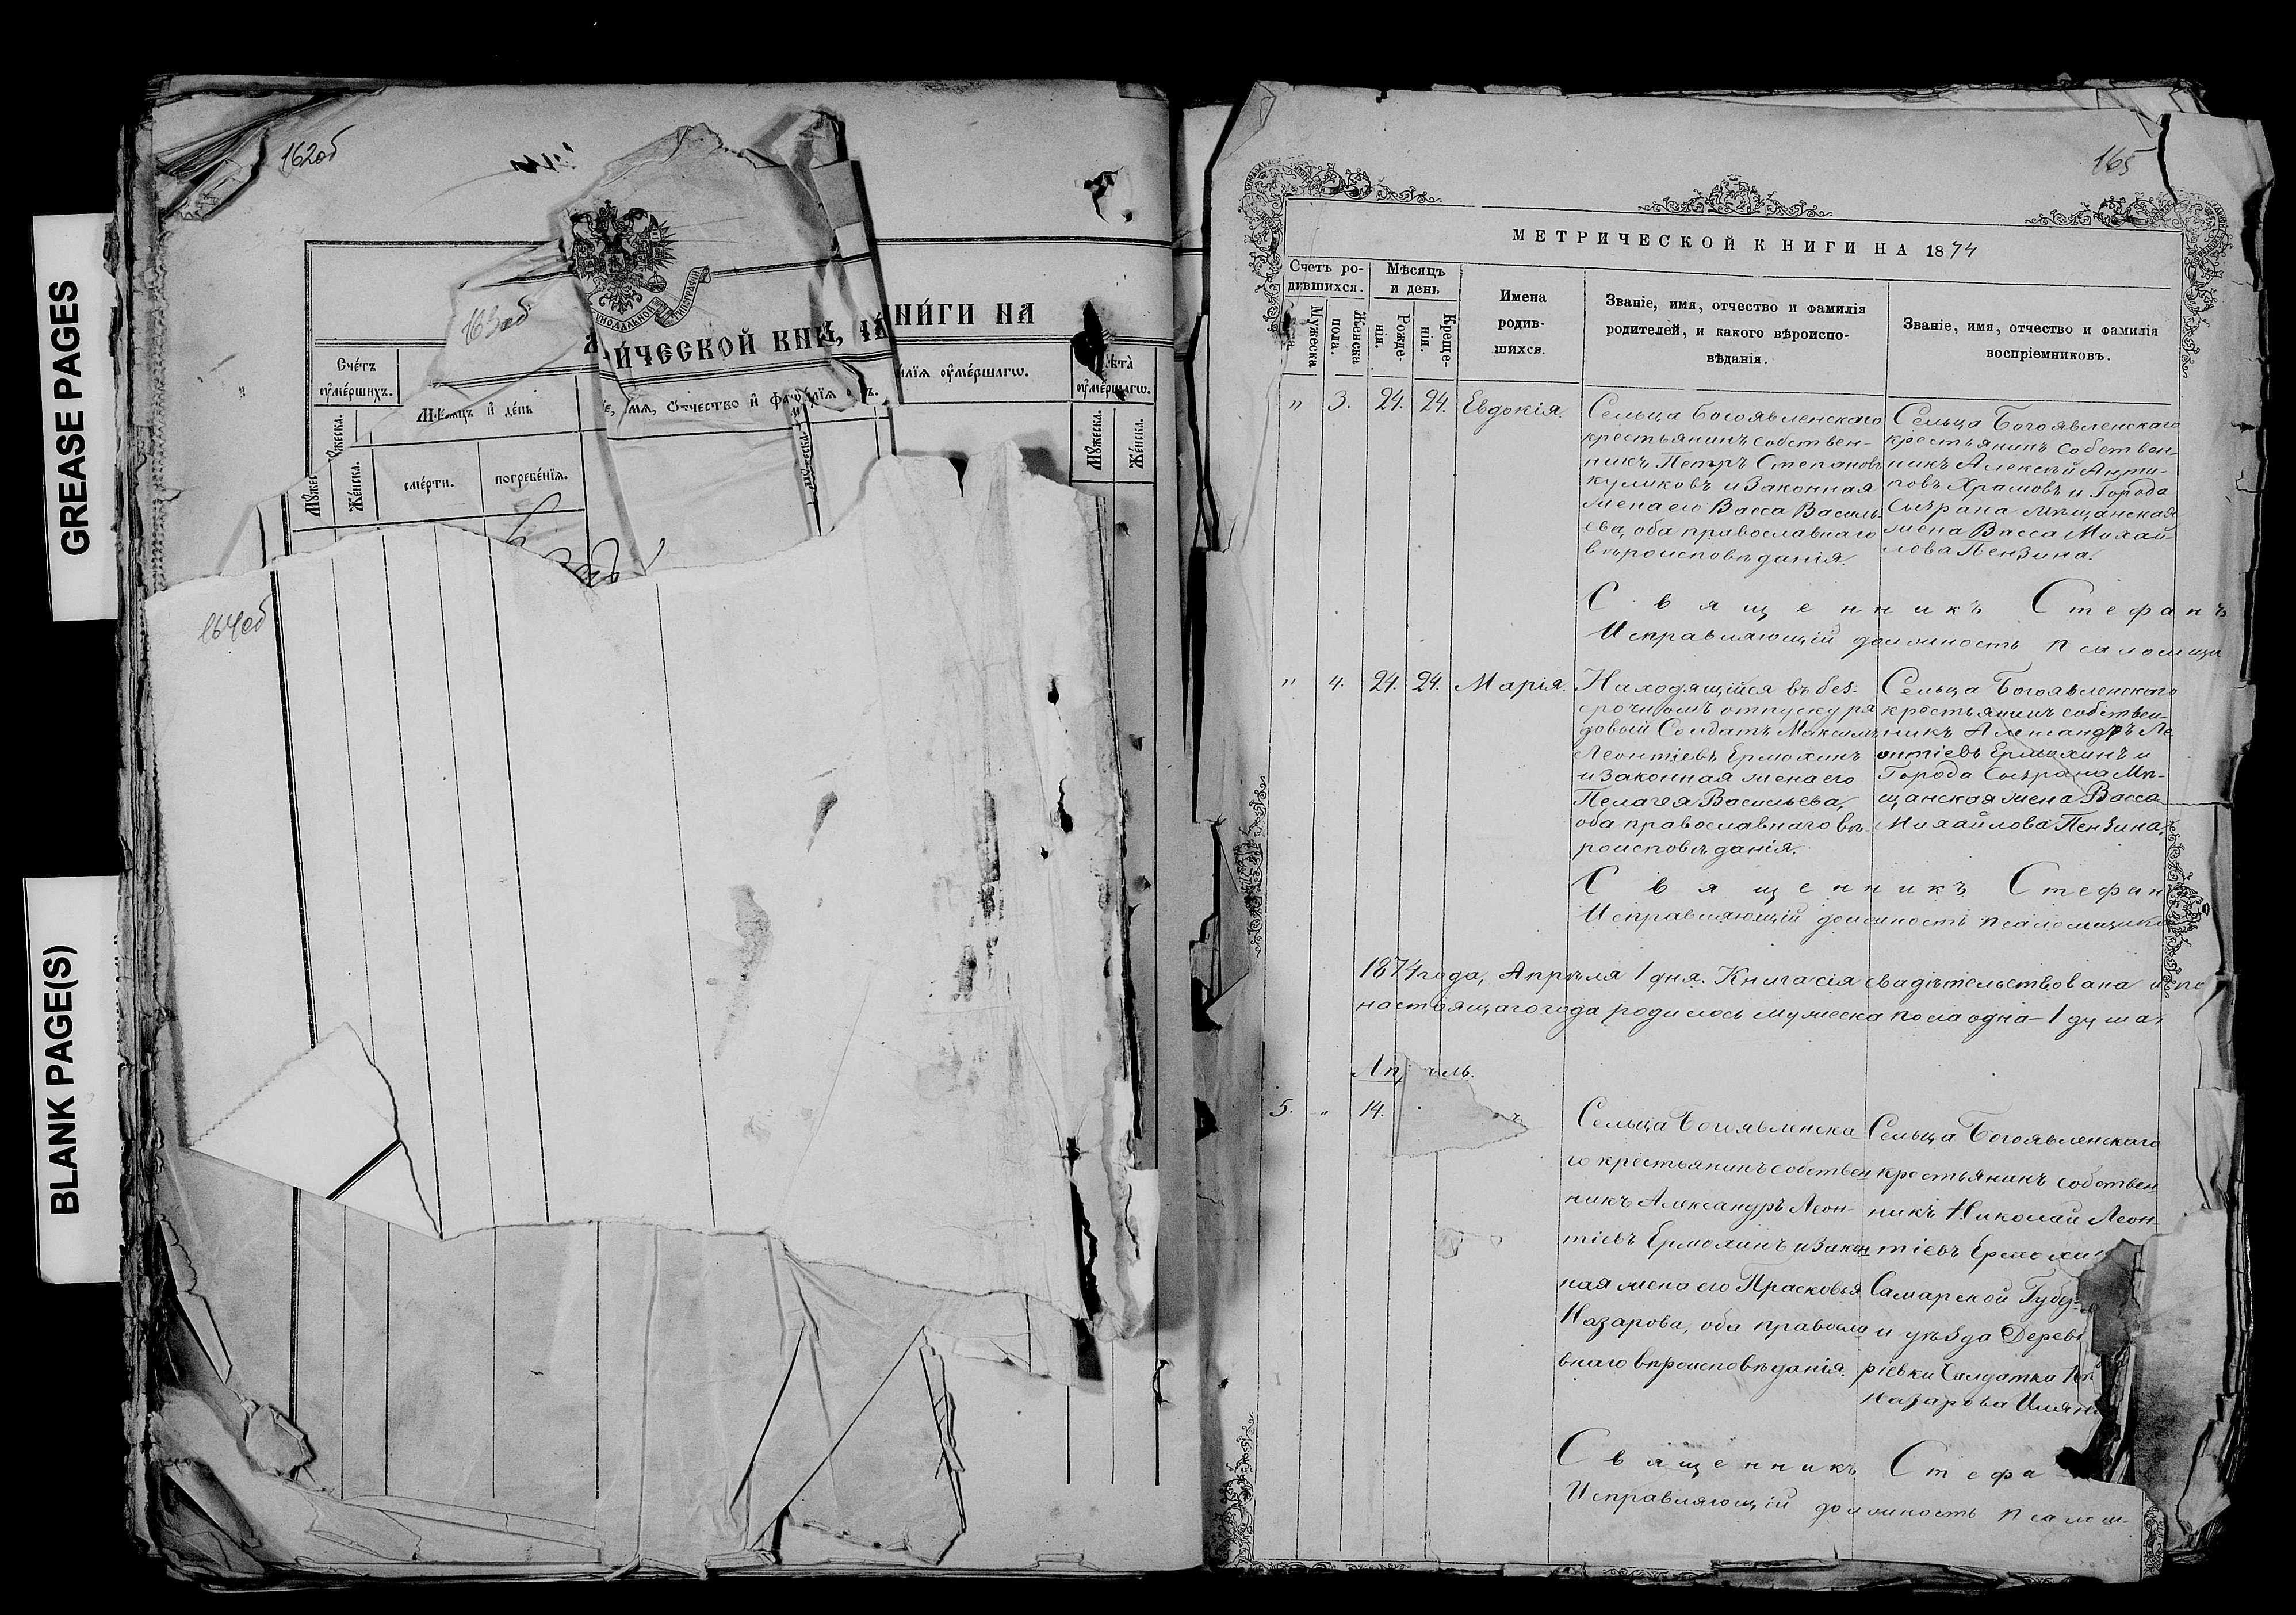 GREASE PAGES
BLANK PAGE(S)
162об
163об
164об
КНИ́ГИ НА
Сче́тъ
оумéршихъ.
Мѣсяцъ и де́нь
Же́нска.
сме́рти.
погребе́нїѧ.
оумéршагѡ.
Мꙋ́жеска.
Же́нска.
165
МЕТРИЧЕСКОЙ КНИГИ НА 1874
Счетъ ро-
дившихся.
Мѣсяцъ
и день
Мужеска
пола.
Женска
пола.
Рожде-
нія.
Креще-
нія.
Имена
родив-
шихся.
Званіе, имя, отчество и фамилія
родителей, и какого вѣроиспо-
вѣданія.
Званіе, имя, отчество и фамилія
воспріемниковъ.
" 3. 24. 24. Евдокія.
Сельца Богоявленскаго
крестьянинъ собствен-
никъ Петръ Степановъ
Куликовъ и законная
жена его Васса Василь-
ева, оба православнаго
вѣроисповѣданія.
Сельца Богоявленскаго
крестьянинъ собствен-
никъ Алексѣй Анти-
повъ Храмовъ и Города
Сызрана мѣщанская
жена Васса Михай-
лова Пензина.
Священникъ Стефанъ
Исправляющій должность псаломщи
" 4. 24. 24. Марія.
Находящійся въ без-
срочномъ отпуску ря
довый Солдатъ Максимъ
Леонтіевъ Ермохинъ
и законная жена его
Пелагея Васильева,
оба православнаго вѣ-
роисповѣданія.
Сельца Богоявленскаго
крестьянинъ собствен-
никъ Александръ Ле
онтіевъ Ермохинъ и
Города Сызрана Мѣ-
щанская жена Васса
Михайлова Пензина.
Священникъ Стефан
Исправляющій должность псаломщика
1874 года, Апрѣля 1 дня. Книга сія свидѣтельствована и по
настоящаго года родилось мужеска пола одна - 1 душа,
Ап ѣль.
5. " 14.
Сельца Богоявленска
го крестьянинъ собствен
никъ Александръ Леон-
тіевъ Ермохинъ и закон
ная жена его Прасковья
Назарова, оба правосла
внаго вѣроисповѣданія.
Сельца Богоявленскаго
крестьянинъ собствен
никъ Николай Леон-
тіевъ Ермохин
Самарской Губер-
и уѣзда Дерев
ріевки Салдатка
Назарова
Священникъ Стефа
Исправляющій должность псалом-